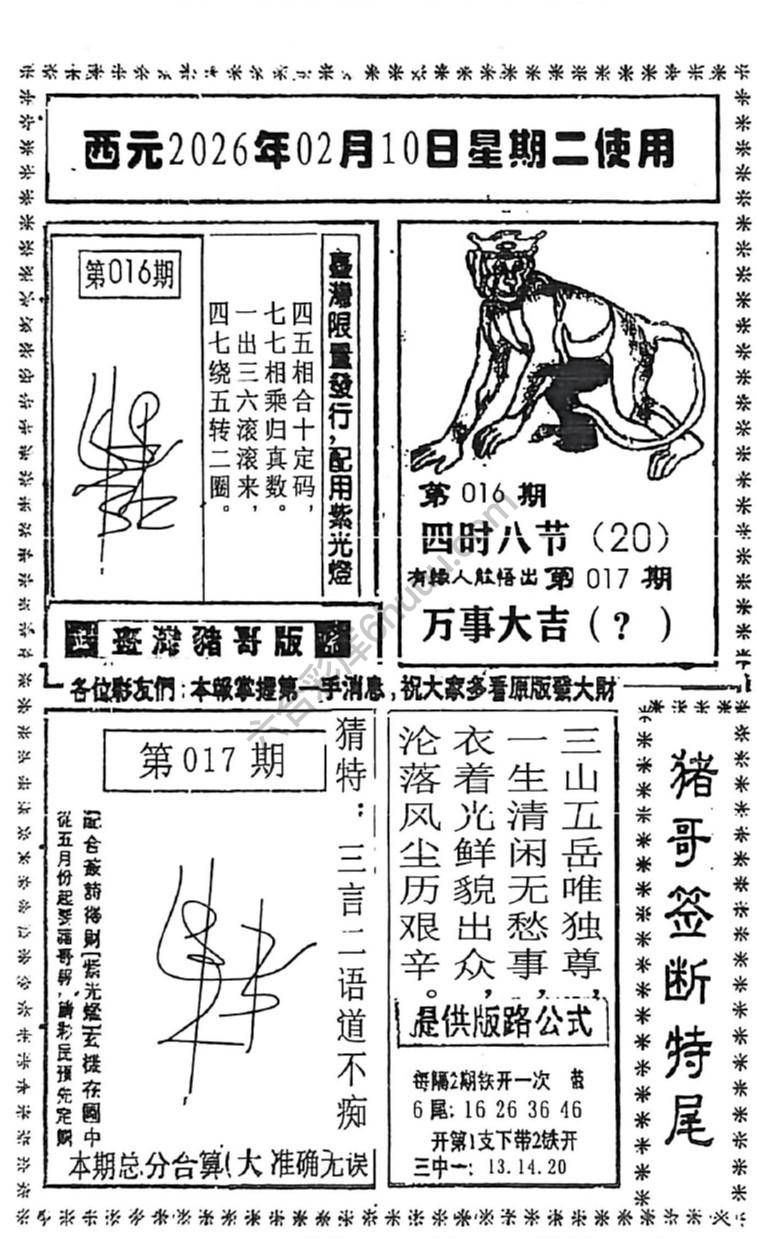 西元2026年02月10日星期二使用
第016期
臺灣限量發行,配用紫光燈
四五相合十定码,
七七相乘归真数。
一出三六滚滚来,
四七绕五转二圈。
臺灣豬哥版
第 016 期
四时八节（20）
有緣人能悟出 第 017 期
万事大吉（?）
各位彩友們:本報掌握第一手消息,祝大家多看原版發大財
第017期
猜特：三言二语道不痴
配合藏詩得財[紫光燈]玄機在圖中
從五月份起
預先定購
本期总分合算(大 准确无误
三山五岳唯独尊,
一生清闲无愁事,
衣着光鲜貌出众,
沦落风尘历艰辛。
提供版路公式
每隔2期铁开一次
6尾: 16 26 36 46
开第1支下带2铁开
三中一: 13.14.20
猪哥签断特尾
六合彩库6huuu.com